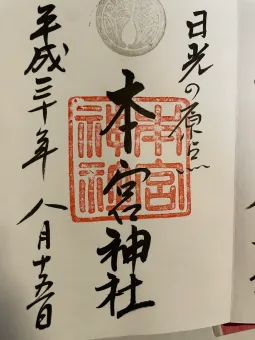 日光の原点
本宮神社
本宮神社
平成三十年八月十五日